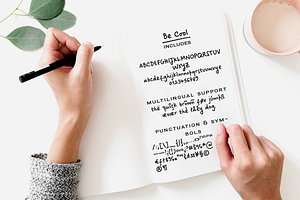 Be Cool
INCLUDES
ABCDEFGHIJKLMNOPQRSTUV
WXYZ
abcdefghijklmnopqrstuvwxyz
0123456789
MULTILINGUAL SUPPORT
thé quïck bröwn føx jümps
över the låzy dog
PUNCTUATION & SYM-
BOLS